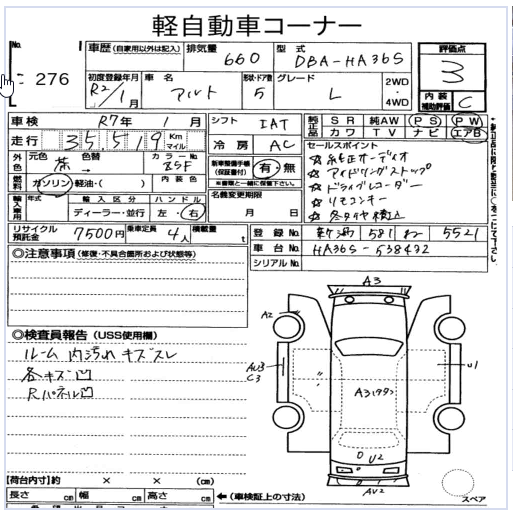 軽自動車コーナー
No.
276
車歴 (自家用以外は記入) 排気量 660 型式 DBA-HA36S
評価点
3
初度登録年月 R2/1月 車名 アルト 形状・ドア数 5 グレード L 2WD・4WD
内装補助評価 C
車検 R7年 1月 シフト IAT
純正品 SR 純AW PS PW
カワ TV ナビ エアB
走行 35,519 Km マイル
冷房 AC
セールスポイント
☆純正オーディオ
☆アイドリングストップ
☆ドライブレコーダー
☆リモコンキー
外色 元色 茶 色替 → カラーNo. ZSF
新車整備手帳 (保証書付) 有・無
※書類と一緒に保管下さい。
燃料 ガソリン・軽油・( ) 内装色
名義変更期限
月 日
輸入車用 年式 輸入区分 ハンドル
ディーラー・並行 左・右
リサイクル預託金 7500円 乗車定員 4人 積載量 t
登録No. 581 5521
車台No. HA36S-538432
シリアルNo.
◎注意事項 (修復・不具合箇所および状態等)
◎検査員報告 (USS使用欄)
ルーム内汚れキズスレ
各キズ凹
Rパネル凹
A3
A2
AU3
C3
U1
A3(ワタン)
U2
AU2
スペア
【荷台内寸】約 × × (cm)
長さ cm 幅 cm 高さ cm
←(車検証上の寸法)